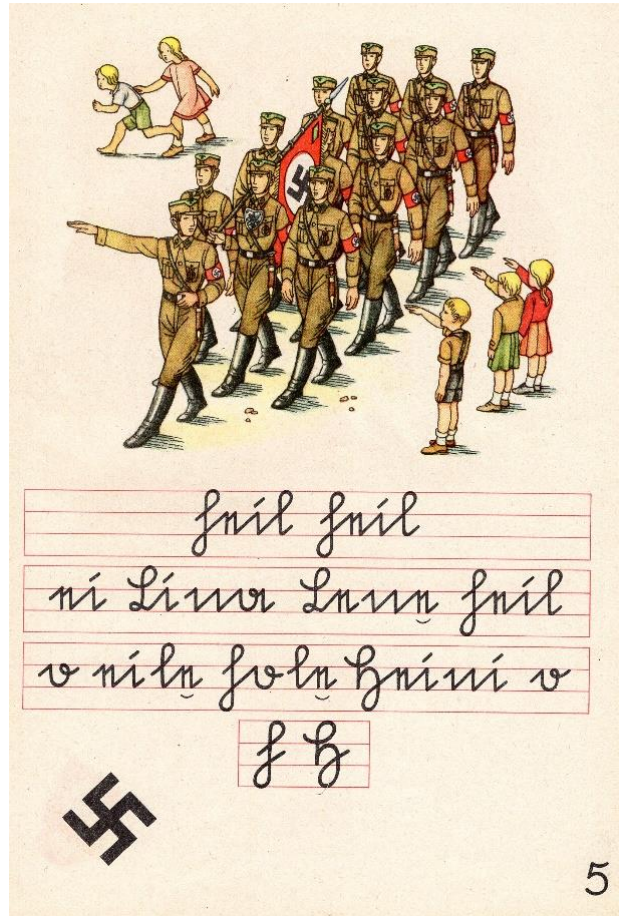 heil heil
ei Lina Lene heil
o eile hole Heini o
h H
5